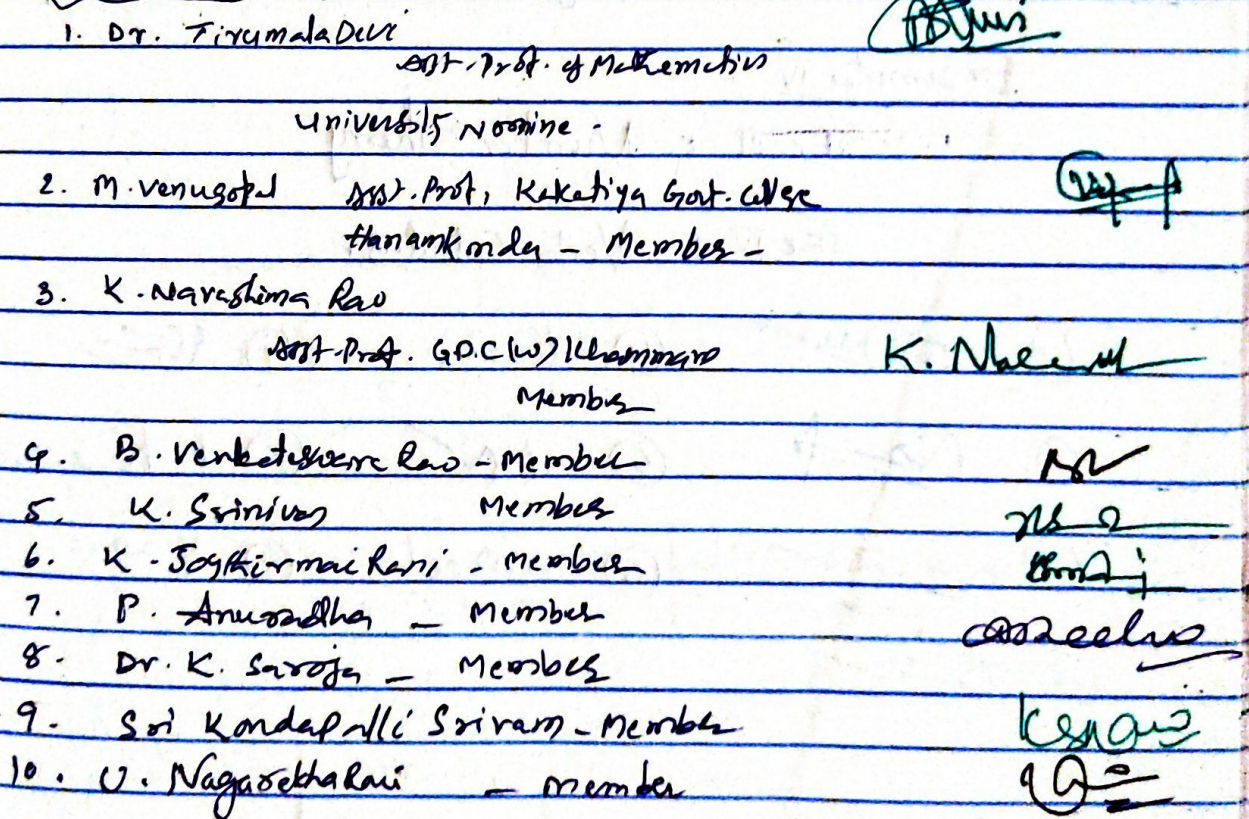 1. Dr. Tirumala Devi
Asst. Prof. of Mathematics
University Nomine -
2. M. Venugopal Asst. Prof, Kakatiya Govt. College
Hanamkonda - Member -
3. K. Narashima Rao
Asst. Prof. G.D.C (W) Khammam
Member
4. B. Venkateswara Rao - Member
5. K. Srinivas Member
6. K. Jogthirmai Rani - Member
7. P. Anuradha - Member
8. Dr. K. Saroja - Member
9. Sri Kondapalli Sriram - Member
10. U. Nagarekha Rani - member